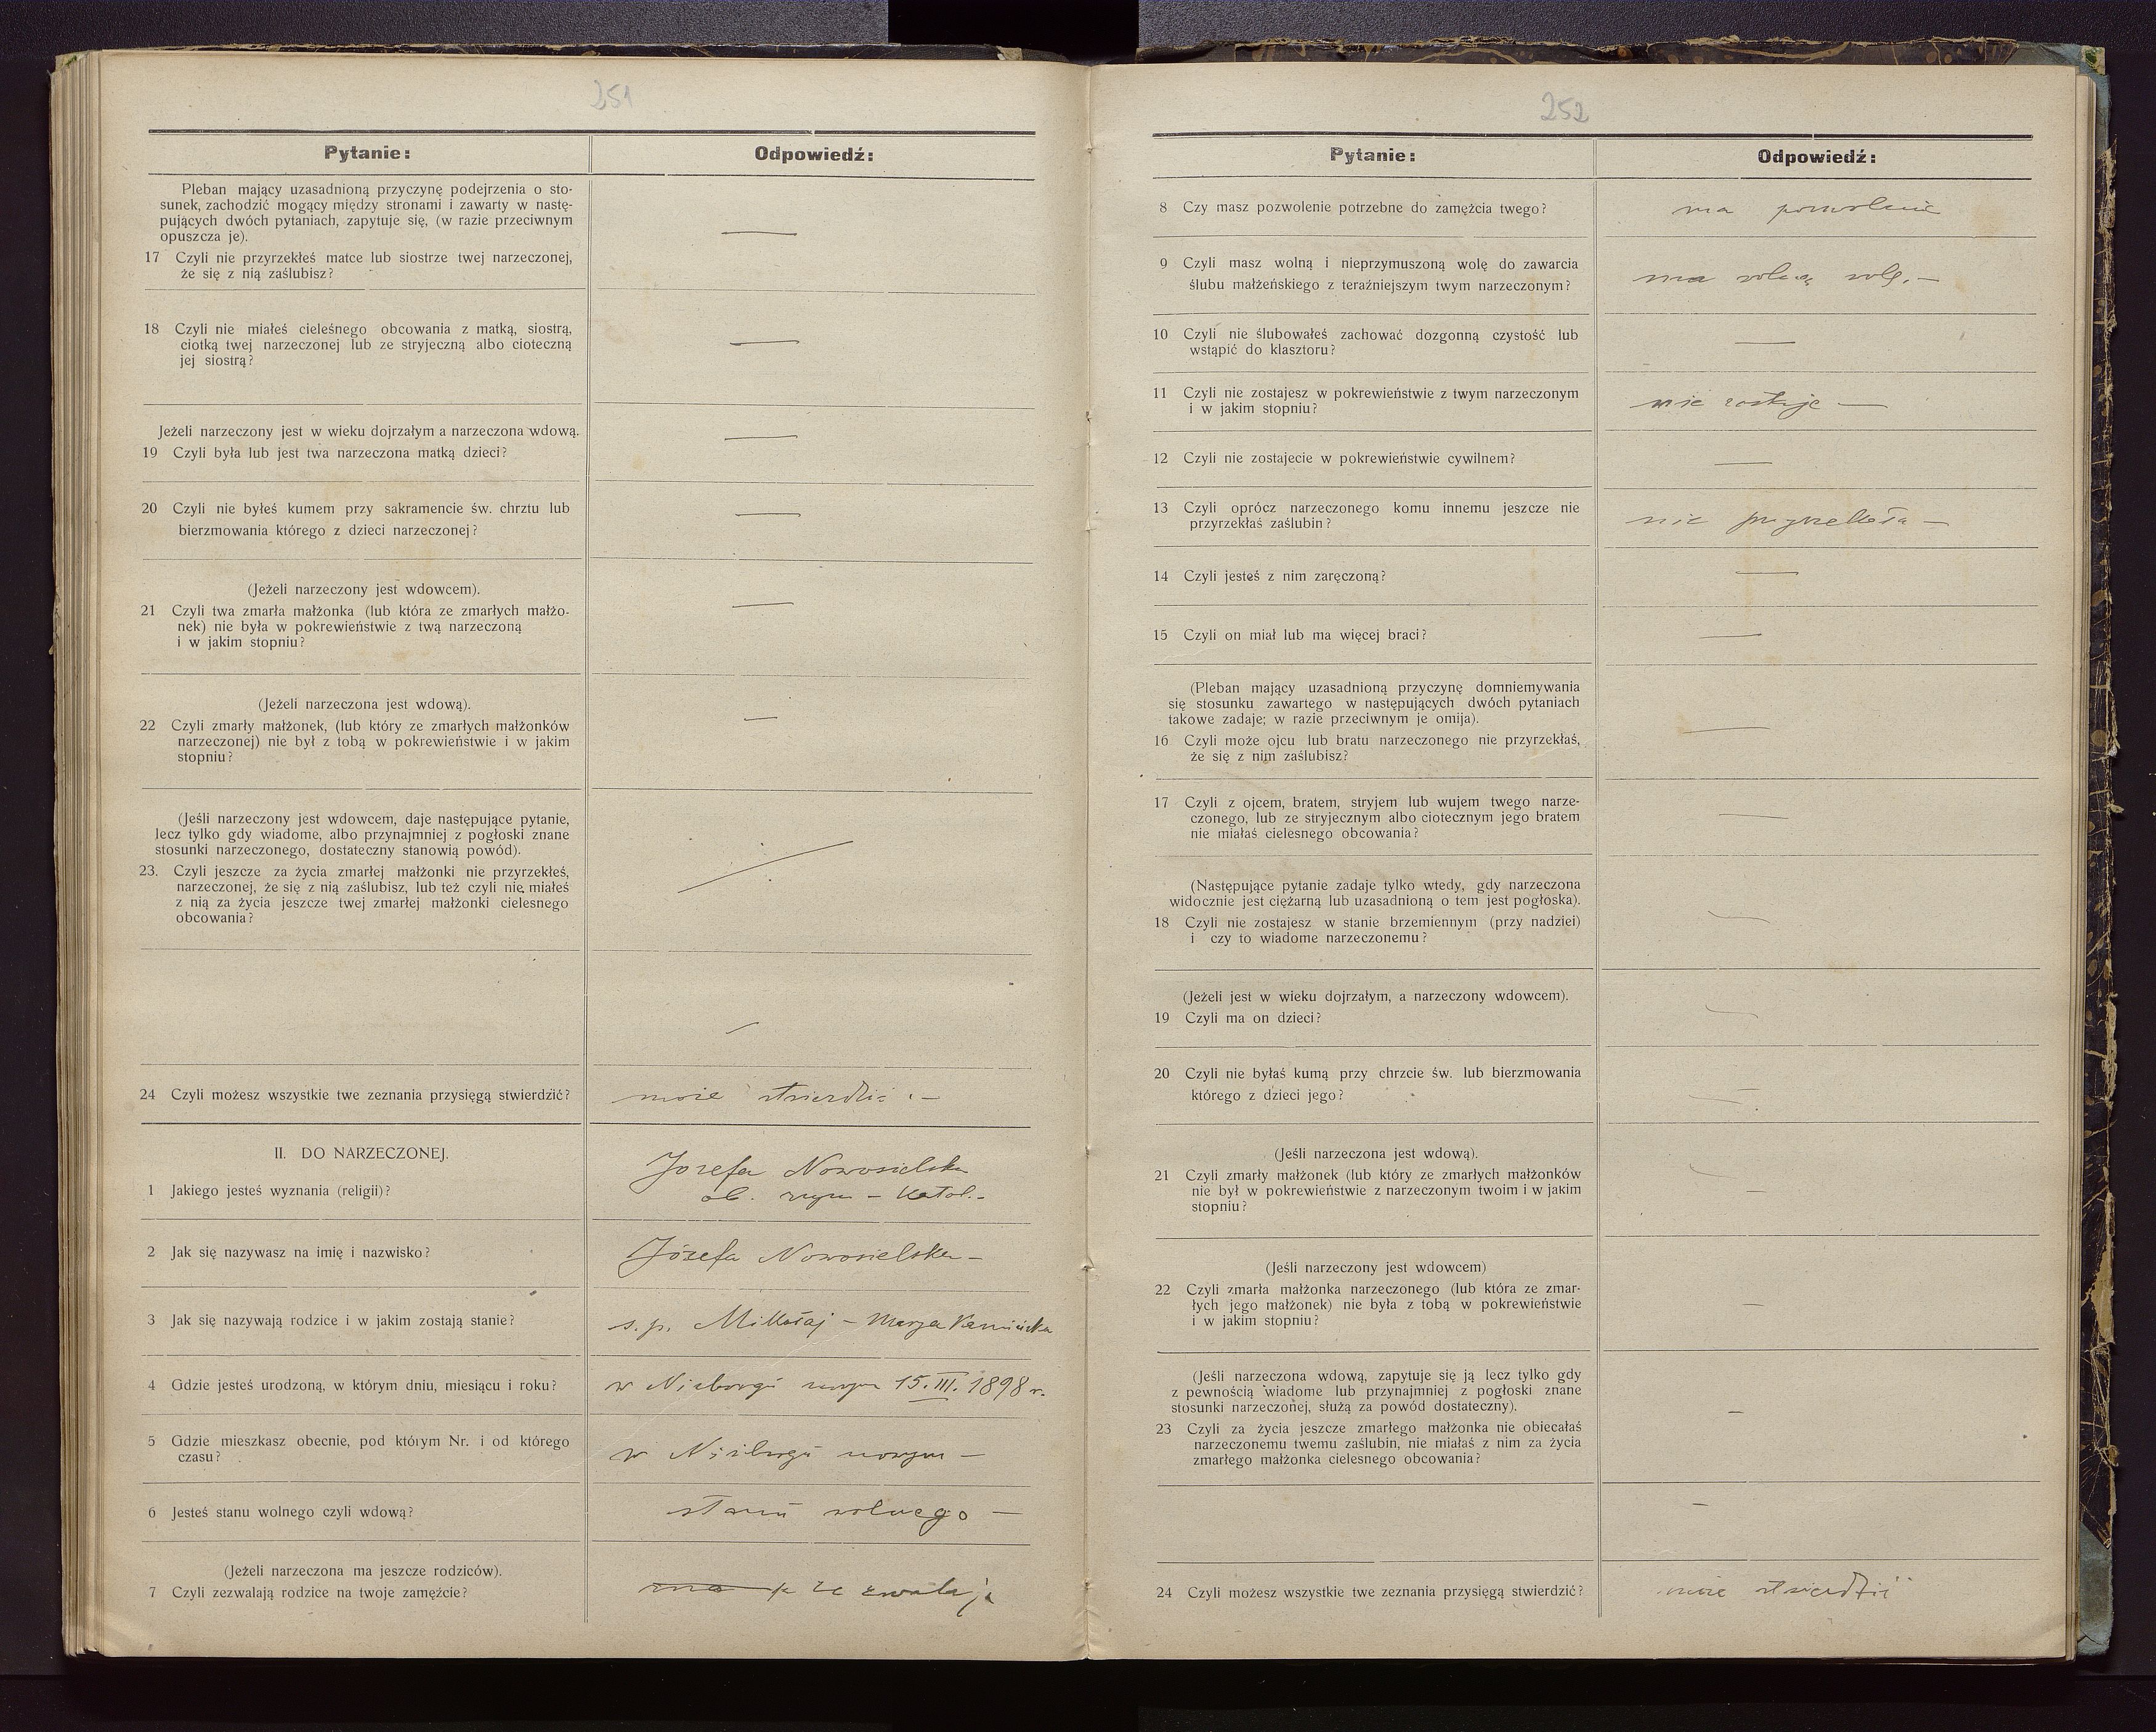 251
Pytanie:
Odpowiedź:
Pleban mający uzasadnioną przyczynę podejrzenia o sto-
sunek, zachodzić mogący między stronami i zawarty w nastę-
pujących dwóch pytaniach, zapytuje się, (w razie przeciwnym
opuszcza je).
—
17 Czyli nie przyrzekłeś matce lub siostrze twej narzeczonej,
że się z nią zaślubisz?
18 Czyli nie miałeś cieleśnego obcowania z matką, siostrą,
ciotką twej narzeczonej lub ze stryjeczną albo cioteczną
jej siostrą?
—
Jeżeli narzeczony jest w wieku dojrzałym a narzeczona wdową.
19 Czyli była lub jest twa narzeczona matką dzieci?
—
20 Czyli nie byłeś kumem przy sakramencie św. chrztu lub
bierzmowania którego z dzieci narzeczonej?
—
(Jeżeli narzeczony jest wdowcem).
21 Czyli twa zmarła małżonka (lub która ze zmarłych małżo-
nek) nie była w pokrewieństwie z twą narzeczoną
i w jakim stopniu?
—
(Jeżeli narzeczona jest wdową).
22 Czyli zmarły małżonek, (lub który ze zmarłych małżonków
narzeczonej) nie był z tobą w pokrewieństwie i w jakim
stopniu?
—
(Jeśli narzeczony jest wdowcem, daje następujące pytanie,
lecz tylko gdy wiadome, albo przynajmniej z pogłoski znane
stosunki narzeczonego, dostateczny stanowią powód).
23. Czyli jeszcze za życia zmarłej małżonki nie przyrzekłeś,
narzeczonej, że się z nią zaślubisz, lub też czyli nie miałeś
z nią za życia jeszcze twej zmarłej małżonki cielesnego
obcowania?
24 Czyli możesz wszystkie twe zeznania przysięgą stwierdzić?
może stwierdzić. —
II. DO NARZECZONEJ.
Jozefa Nowosielska
1 Jakiego jesteś wyznania (religii)?
ob. rzym – katol. –
2 Jak się nazywasz na imię i nazwisko?
Józefa Nowosielska –
3 Jak się nazywają rodzice i w jakim zostają stanie?
s. p. Mikołaj – Marya
4 Gdzie jesteś urodzoną, w którym dniu, miesiącu i roku?
w Niżborgu nowym 15. III. 1898 r.
5 Gdzie mieszkasz obecnie, pod którym Nr. i od którego
czasu?
w Niżborgu nowym —
6 Jesteś stanu wolnego czyli wdową?
stanu wolnego —
(Jeżeli narzeczona ma jeszcze rodziców).
7 Czyli zezwalają rodzice na twoje zamęźcie?
zezwalają
252
Pytanie:
Odpowiedź:
8 Czy masz pozwolenie potrzebne do zamęźcia twego?
ma pozwolenie
9 Czyli masz wolną i nieprzymuszoną wolę do zawarcia
ślubu małżeńskiego z teraźniejszym twym narzeczonym?
ma wolną wolę. —
10 Czyli nie ślubowałeś zachować dozgonną czystość lub
wstąpić do klasztoru?
—
11 Czyli nie zostajesz w pokrewieństwie z twym narzeczonym
i w jakim stopniu?
nie zostaje —
12 Czyli nie zostajecie w pokrewieństwie cywilnem?
—
13 Czyli oprócz narzeczonego komu innemu jeszcze nie
przyrzekłaś zaślubin?
nie przyrzekła —
14 Czyli jesteś z nim zaręczoną?
—
15 Czyli on miał lub ma więcej braci?
—
(Pleban mający uzasadnioną przyczynę domniemywania
się stosunku zawartego w następujących dwóch pytaniach
takowe zadaje; w razie przeciwnym je omija).
16 Czyli może ojcu lub bratu narzeczonego nie przyrzekłaś,
że się z nim zaślubisz?
—
17 Czyli z ojcem, bratem, stryjem lub wujem twego narze-
czonego, lub ze stryjecznym albo ciotecznym jego bratem
nie miałaś cielesnego obcowania?
—
(Następujące pytanie zadaje tylko wtedy, gdy narzeczona
widocznie jest ciężarną lub uzasadnioną o tem jest pogłoska).
18 Czyli nie zostajesz w stanie brzemiennym (przy nadziei)
i czy to wiadome narzeczonemu?
—
(Jeżeli jest w wieku dojrzałym, a narzeczony wdowcem).
19 Czyli ma on dzieci?
—
20 Czyli nie byłaś kumą przy chrzcie św. lub bierzmowania
którego z dzieci jego?
—
(Jeśli narzeczona jest wdową).
21 Czyli zmarły małżonek (lub który ze zmarłych małżonków
nie był w pokrewieństwie z narzeczonym twoim i w jakim
stopniu?
—
(Jeśli narzeczony jest wdowcem)
22 Czyli zmarła małżonka narzeczonego (lub która ze zmar-
łych jego małżonek) nie była z tobą w pokrewieństwie
i w jakim stopniu?
—
(Jeśli narzeczona wdową, zapytuje się ją lecz tylko gdy
z pewnością wiadome lub przynajmniej z pogłoski znane
stosunki narzeczonej, służą za powód dostateczny).
23 Czyli za życia jeszcze zmarłego małżonka nie obiecałaś
narzeczonemu twemu zaślubin, nie miałaś z nim za życia
zmarłego małżonka cielesnego obcowania?
—
24 Czyli możesz wszystkie twe zeznania przysięgą stwierdzić?
może stwierdzić